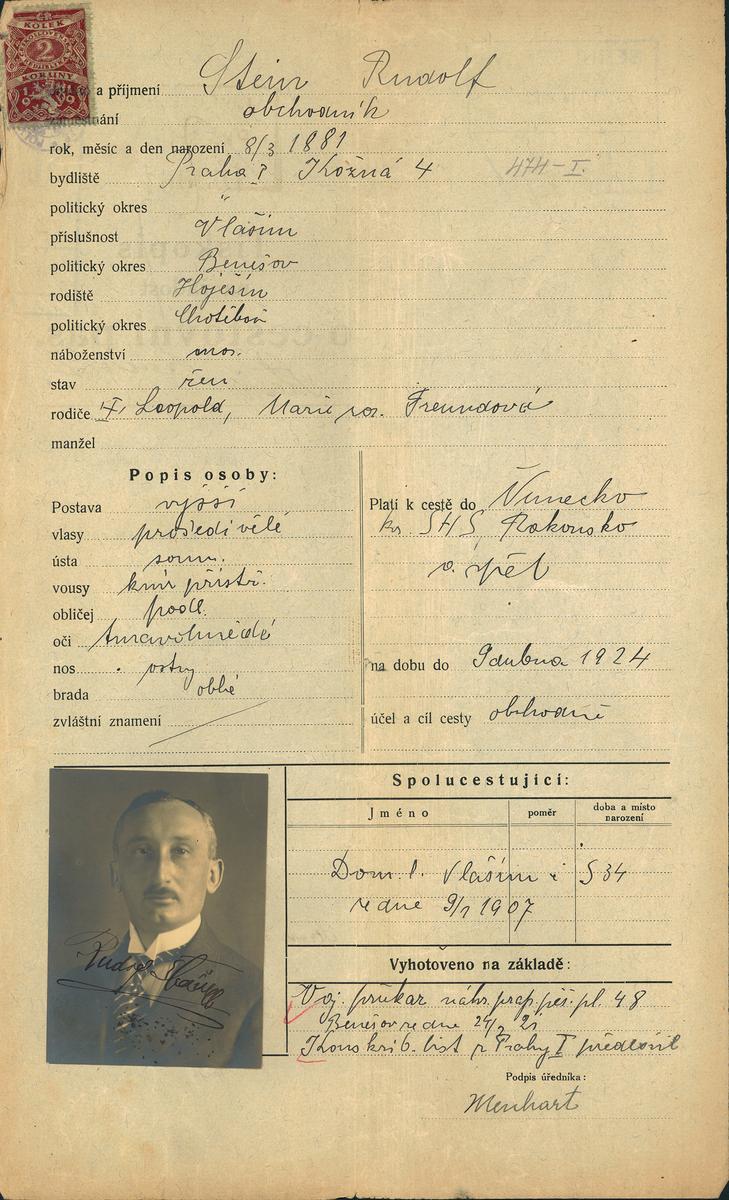 KOLEK
2
KORUNY
a příjmení Stein Rudolf
zaměstnání obchodník
rok, měsíc a den narození 8/3 1881
bydliště Praha I Kožná 4 474-I.
politický okres "
příslušnost Vlašim
politický okres Benešov
rodiště Hoješín
politický okres Chotěboř
náboženství mos.
stav žen
rodiče Leopold, Marie roz. Freundová
manžel
Popis osoby:
Postava vyšší
vlasy prošedivělé
ústa soum.
vousy knír přistř.
obličej podl.
oči tmavohnědé
nos ostrý
brada oblé
zvláštní znamení
Platí k cestě do Německo
kr. SHS, Rakousko
a zpět
na dobu do 9 dubna 1924
účel a cíl cesty obchodně
Spolucestující:
Jméno poměr doba a místo narození
Dom. l. Vlašim č 534
ze dne 9/1 1907
Vyhotoveno na základě:
Voj. průkaz náhr. prap. pěš. pl. 48
Benešov ze dne 21
Konskrib. list z Prahy I předložil
Podpis úředníka:
Menhart